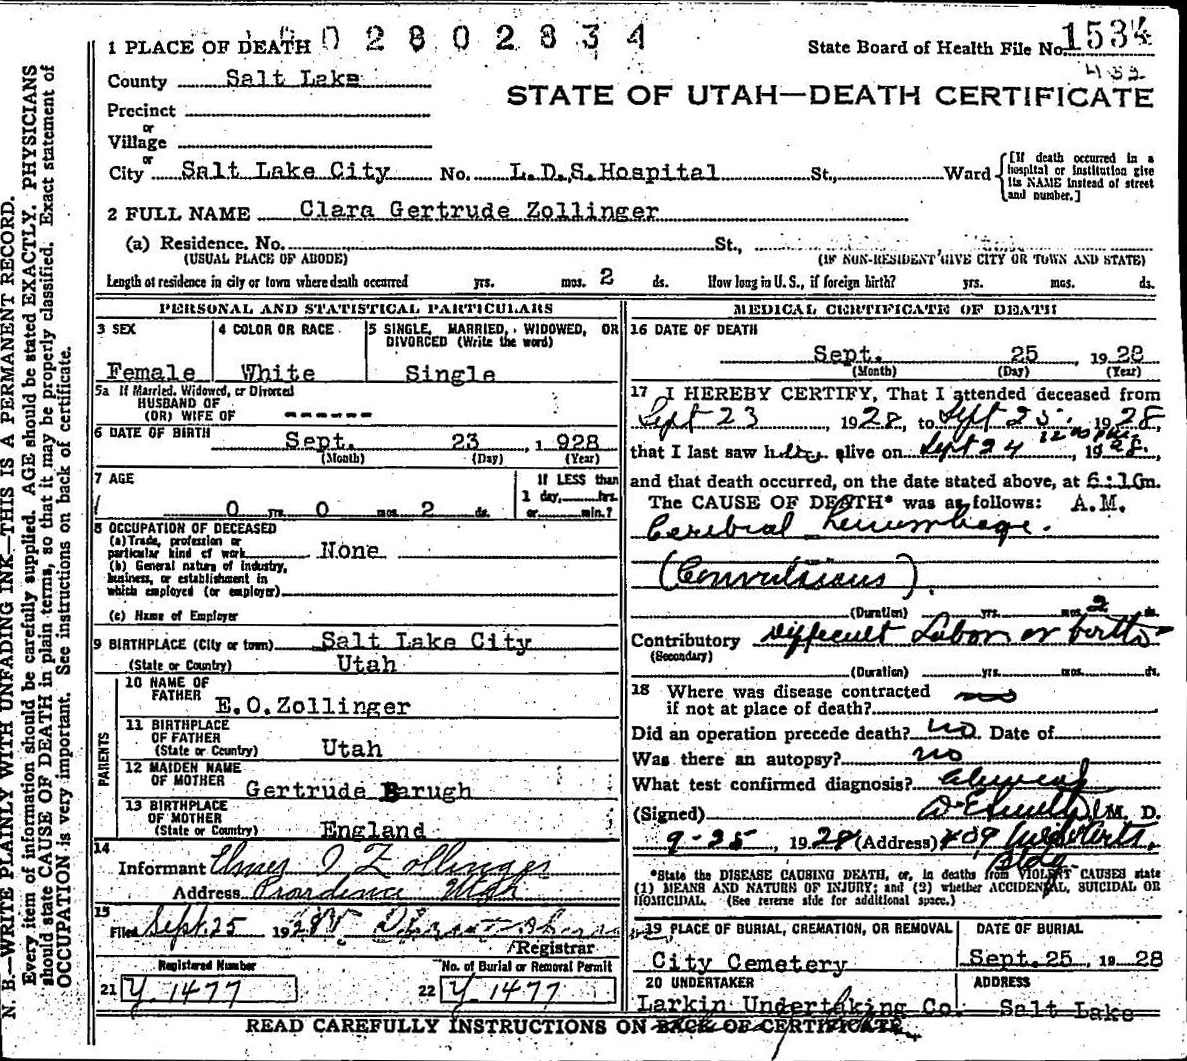 1 PLACE OF DEATH 0 0 2 8 0 2 8 3 4
State Board of Health File No. 1534
432
County Salt Lake
STATE OF UTAH—DEATH CERTIFICATE
Precinct
or
Village
or
City Salt Lake City No. L.D.S.Hospital St., Ward
[If death occurred in a hospital or institution give its NAME instead of street and number.]
2 FULL NAME Clara Gertrude Zollinger
(a) Residence. No. St.,
(USUAL PLACE OF ABODE) (IF NON-RESIDENT GIVE CITY OR TOWN AND STATE)
Length of residence in city or town where death occurred yrs. mos. 2 ds. How long in U. S., if foreign birth? yrs. mos. ds.
PERSONAL AND STATISTICAL PARTICULARS
3 SEX
Female
4 COLOR OR RACE
White
5 SINGLE, MARRIED, WIDOWED, OR DIVORCED (Write the word)
Single
5a If Married, Widowed, or Divorced
HUSBAND OF
(OR) WIFE OF ------
6 DATE OF BIRTH Sept. 23, 1928
(Month) (Day) (Year)
7 AGE
0 yrs. 0 mos. 2 ds.
If LESS than
1 day, hrs.
or min.?
8 OCCUPATION OF DECEASED
(a) Trade, profession or
particular kind of work None
(b) General nature of industry,
business, or establishment in
which employed (or employer)
(c) Name of Employer
9 BIRTHPLACE (City or town) Salt Lake City
(State or Country) Utah
PARENTS
10 NAME OF
FATHER E.O.Zollinger
11 BIRTHPLACE
OF FATHER
(State or Country) Utah
12 MAIDEN NAME
OF MOTHER Gertrude Barugh
13 BIRTHPLACE
OF MOTHER
(State or Country) England
14
Informant Elmer O Zollinger
Address Providence Utah
15
Filed Sept. 25 1928
Registrar
Registered Number No. of Burial or Removal Permit
21 Y 1477 22 Y 1477
MEDICAL CERTIFICATE OF DEATH
16 DATE OF DEATH
Sept. 25, 1928
(Month) (Day) (Year)
17 I HEREBY CERTIFY, That I attended deceased from
Sept 23, 1928, to Sept 25, 1928
that I last saw h alive on Sept 24, 1928,
and that death occurred, on the date stated above, at 6:10m.
The CAUSE OF DEATH* was as follows: A.M.
Cerebral hemorrhage.
(Convulsions).
(Duration) yrs. mos. 2 ds.
Contributory Difficult Labor or birth
(Secondary)
(Duration) yrs. mos. ds.
18 Where was disease contracted
if not at place of death? no
Did an operation precede death? no Date of
Was there an autopsy? no
What test confirmed diagnosis?
(Signed) M. D.
9-25, 1928 (Address) 409
Bldg
*State the DISEASE CAUSING DEATH, or, in deaths from VIOLENT CAUSES state
(1) MEANS AND NATURE OF INJURY; and (2) whether ACCIDENTAL, SUICIDAL OR
HOMICIDAL. (See reverse side for additional space.)
19 PLACE OF BURIAL, CREMATION, OR REMOVAL
City Cemetery
DATE OF BURIAL
Sept. 25, 1928
20 UNDERTAKER ADDRESS
Larkin Undertaking Co. Salt Lake
READ CAREFULLY INSTRUCTIONS ON BACK OF CERTIFICATE
N. B.—WRITE PLAINLY WITH UNFADING INK—THIS IS A PERMANENT RECORD.
Every item of information should be carefully supplied. AGE should be stated EXACTLY. PHYSICIANS
should state CAUSE OF DEATH in plain terms, so that it may be properly classified. Exact statement of
OCCUPATION is very important. See instructions on back of certificate.